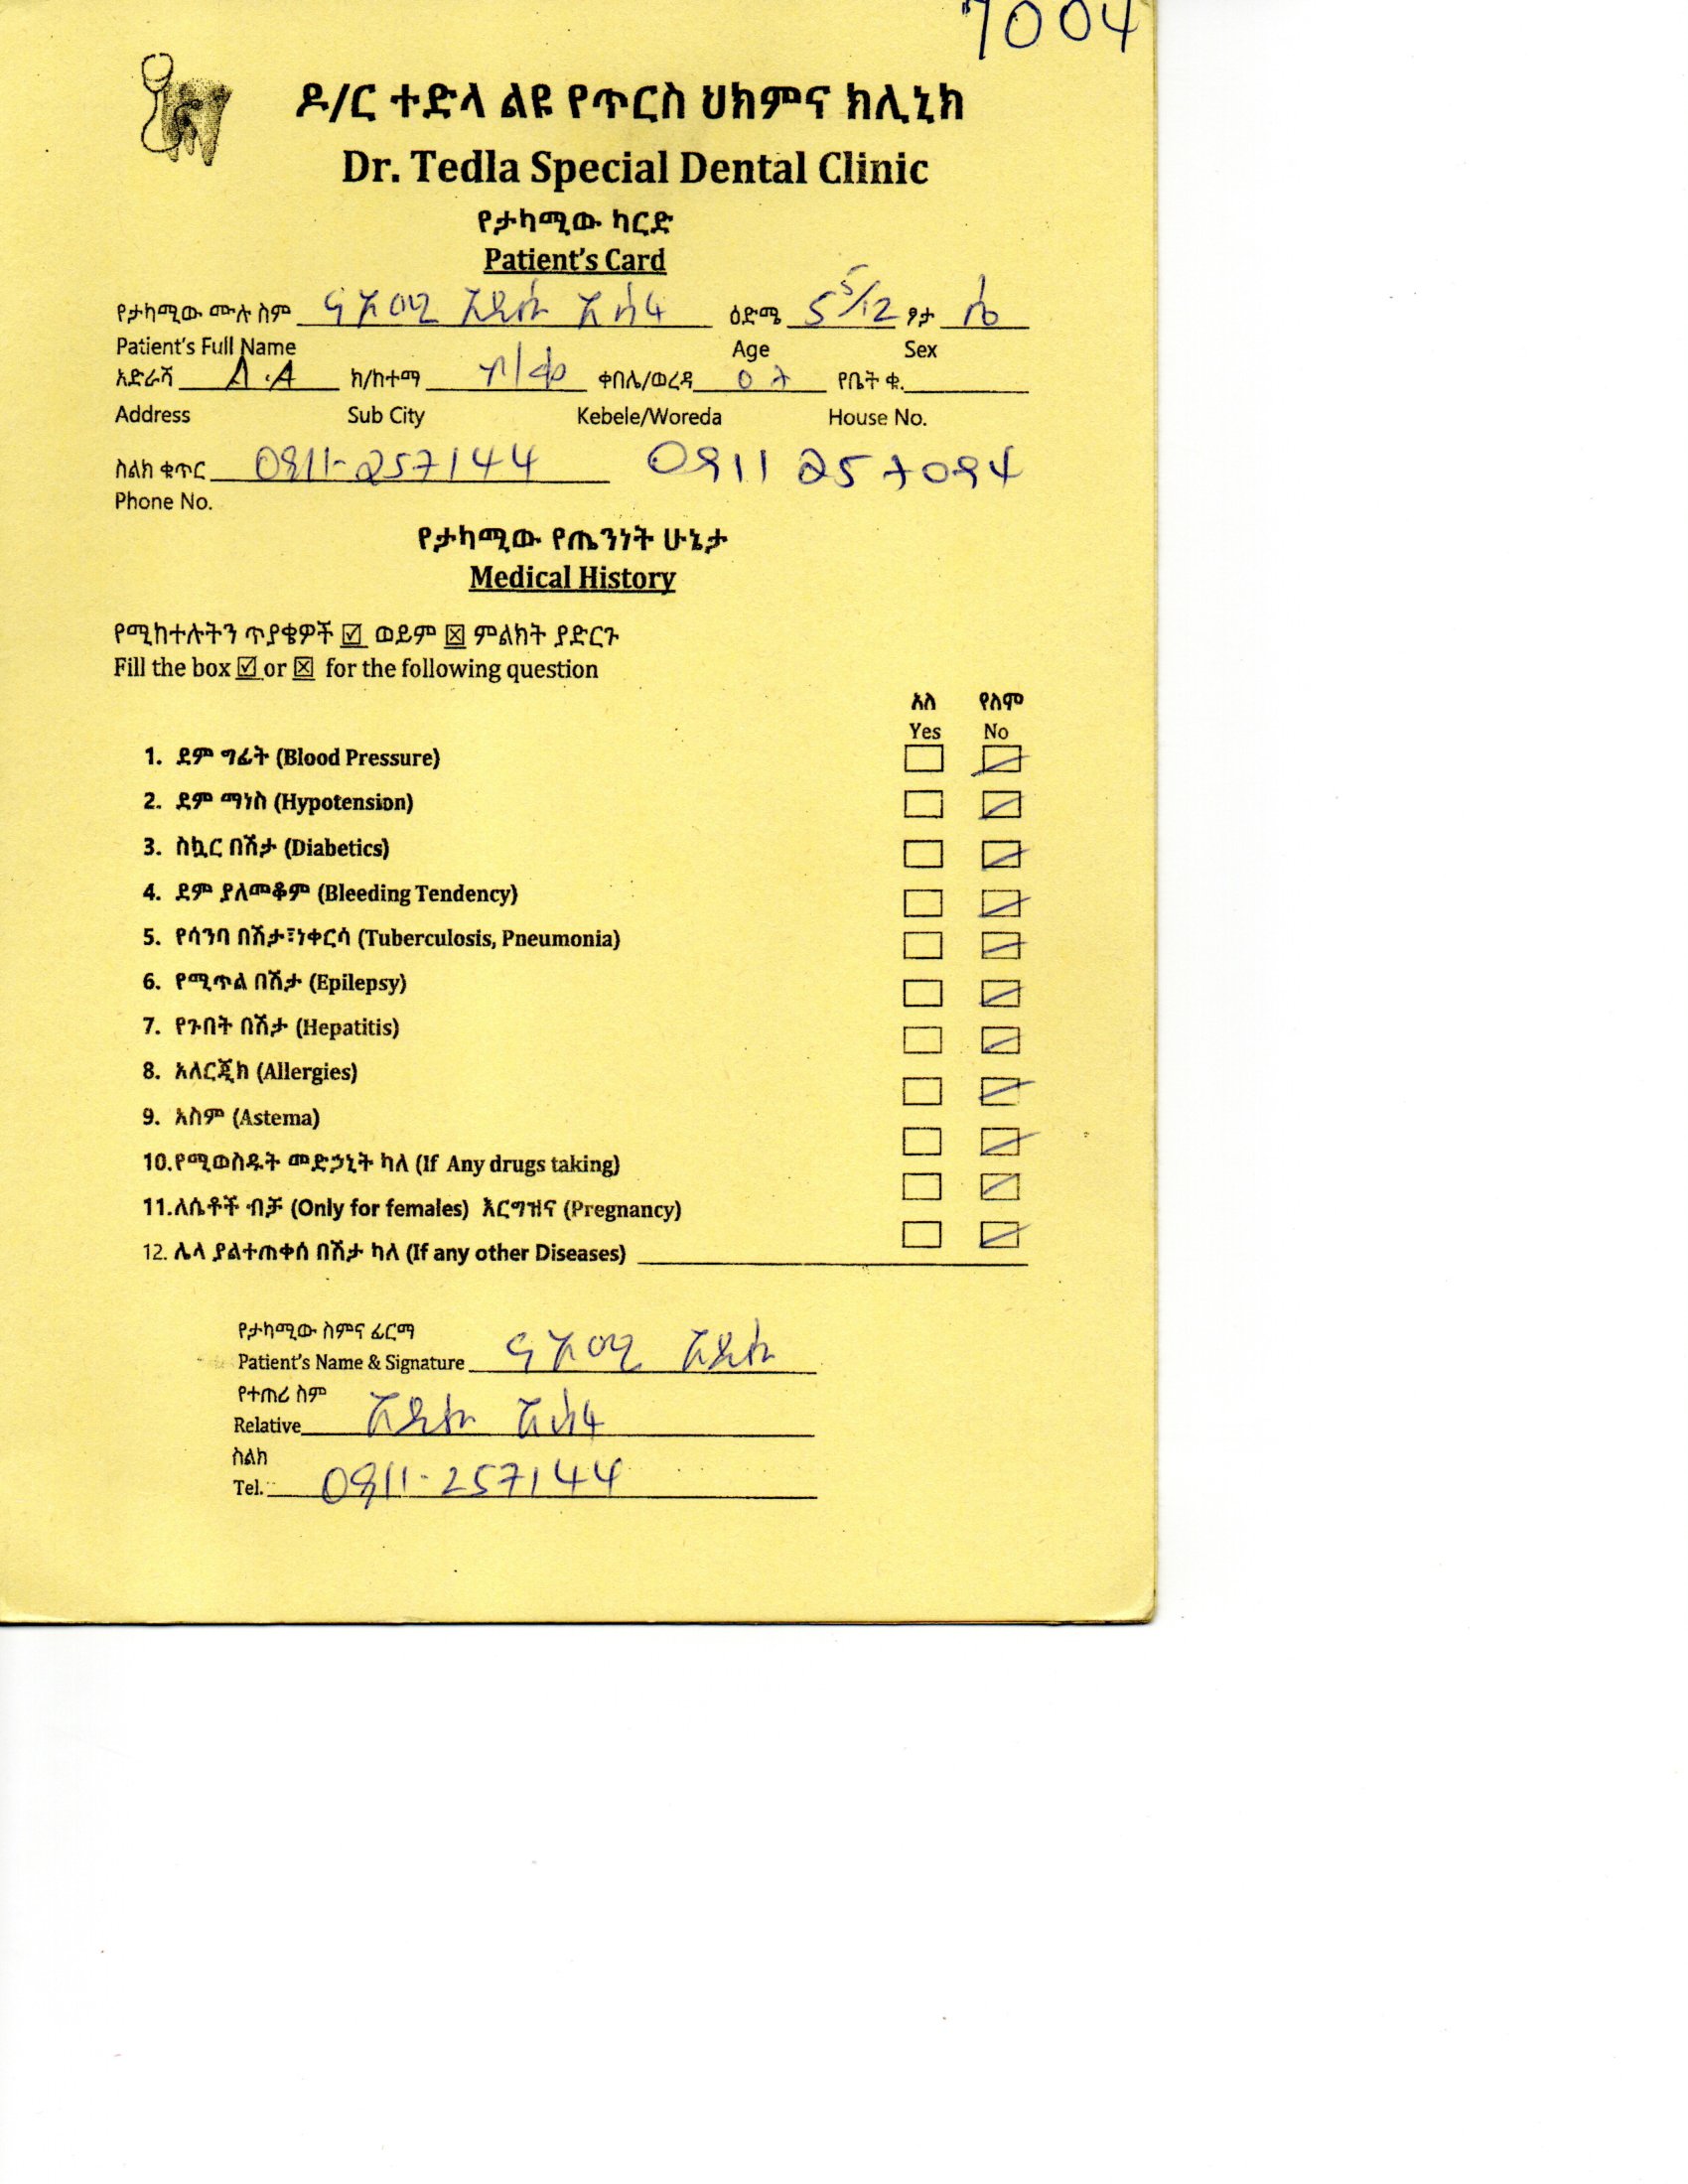 7004
ዶ/ር ተድላ ልዩ የጥርስ ህክምና ክሊኒክ
Dr. Tedla Special Dental Clinic
የታካሚው ካርድ
Patient's Card
የታካሚው ሙሉ ስም ናኦሚ አዲሱ አሰፋ ዕድሜ 5 5/12 ፆታ ሴ
Patient's Full Name Age Sex
አድራሻ A.A ክ/ከተማ ቀበሌ/ወረዳ 07 የቤት ቁ.
Address Sub City Kebele/Woreda House No.
ስልክ ቁጥር 0911-257144 0911 257094
Phone No.
የታካሚው የጤንነት ሁኔታ
Medical History
የሚከተሉትን ጥያቄዎች ☑ ወይም ☒ ምልክት ያድርጉ
Fill the box ☑ or ☒ for the following question
አለ የለም
Yes No
1. ደም ግፊት (Blood Pressure)
2. ደም ማነስ (Hypotension)
3. ስኳር በሽታ (Diabetics)
4. ደም ያለመቆም (Bleeding Tendency)
5. የሳንባ በሽታ፣ነቀርሳ (Tuberculosis, Pneumonia)
6. የሚጥል በሽታ (Epilepsy)
7. የጉበት በሽታ (Hepatitis)
8. አለርጂክ (Allergies)
9. አስም (Astema)
10.የሚወስዱት መድኃኒት ካለ (If Any drugs taking)
11.ለሴቶች ብቻ (Only for females) እርግዝና (Pregnancy)
12. ሌላ ያልተጠቀሰ በሽታ ካለ (If any other Diseases)
የታካሚው ስምና ፊርማ
Patient's Name & Signature ናኦሚ አዲሱ
የተጠሪ ስም
Relative አዲሱ አሰፋ
ስልክ
Tel. 0911-257144